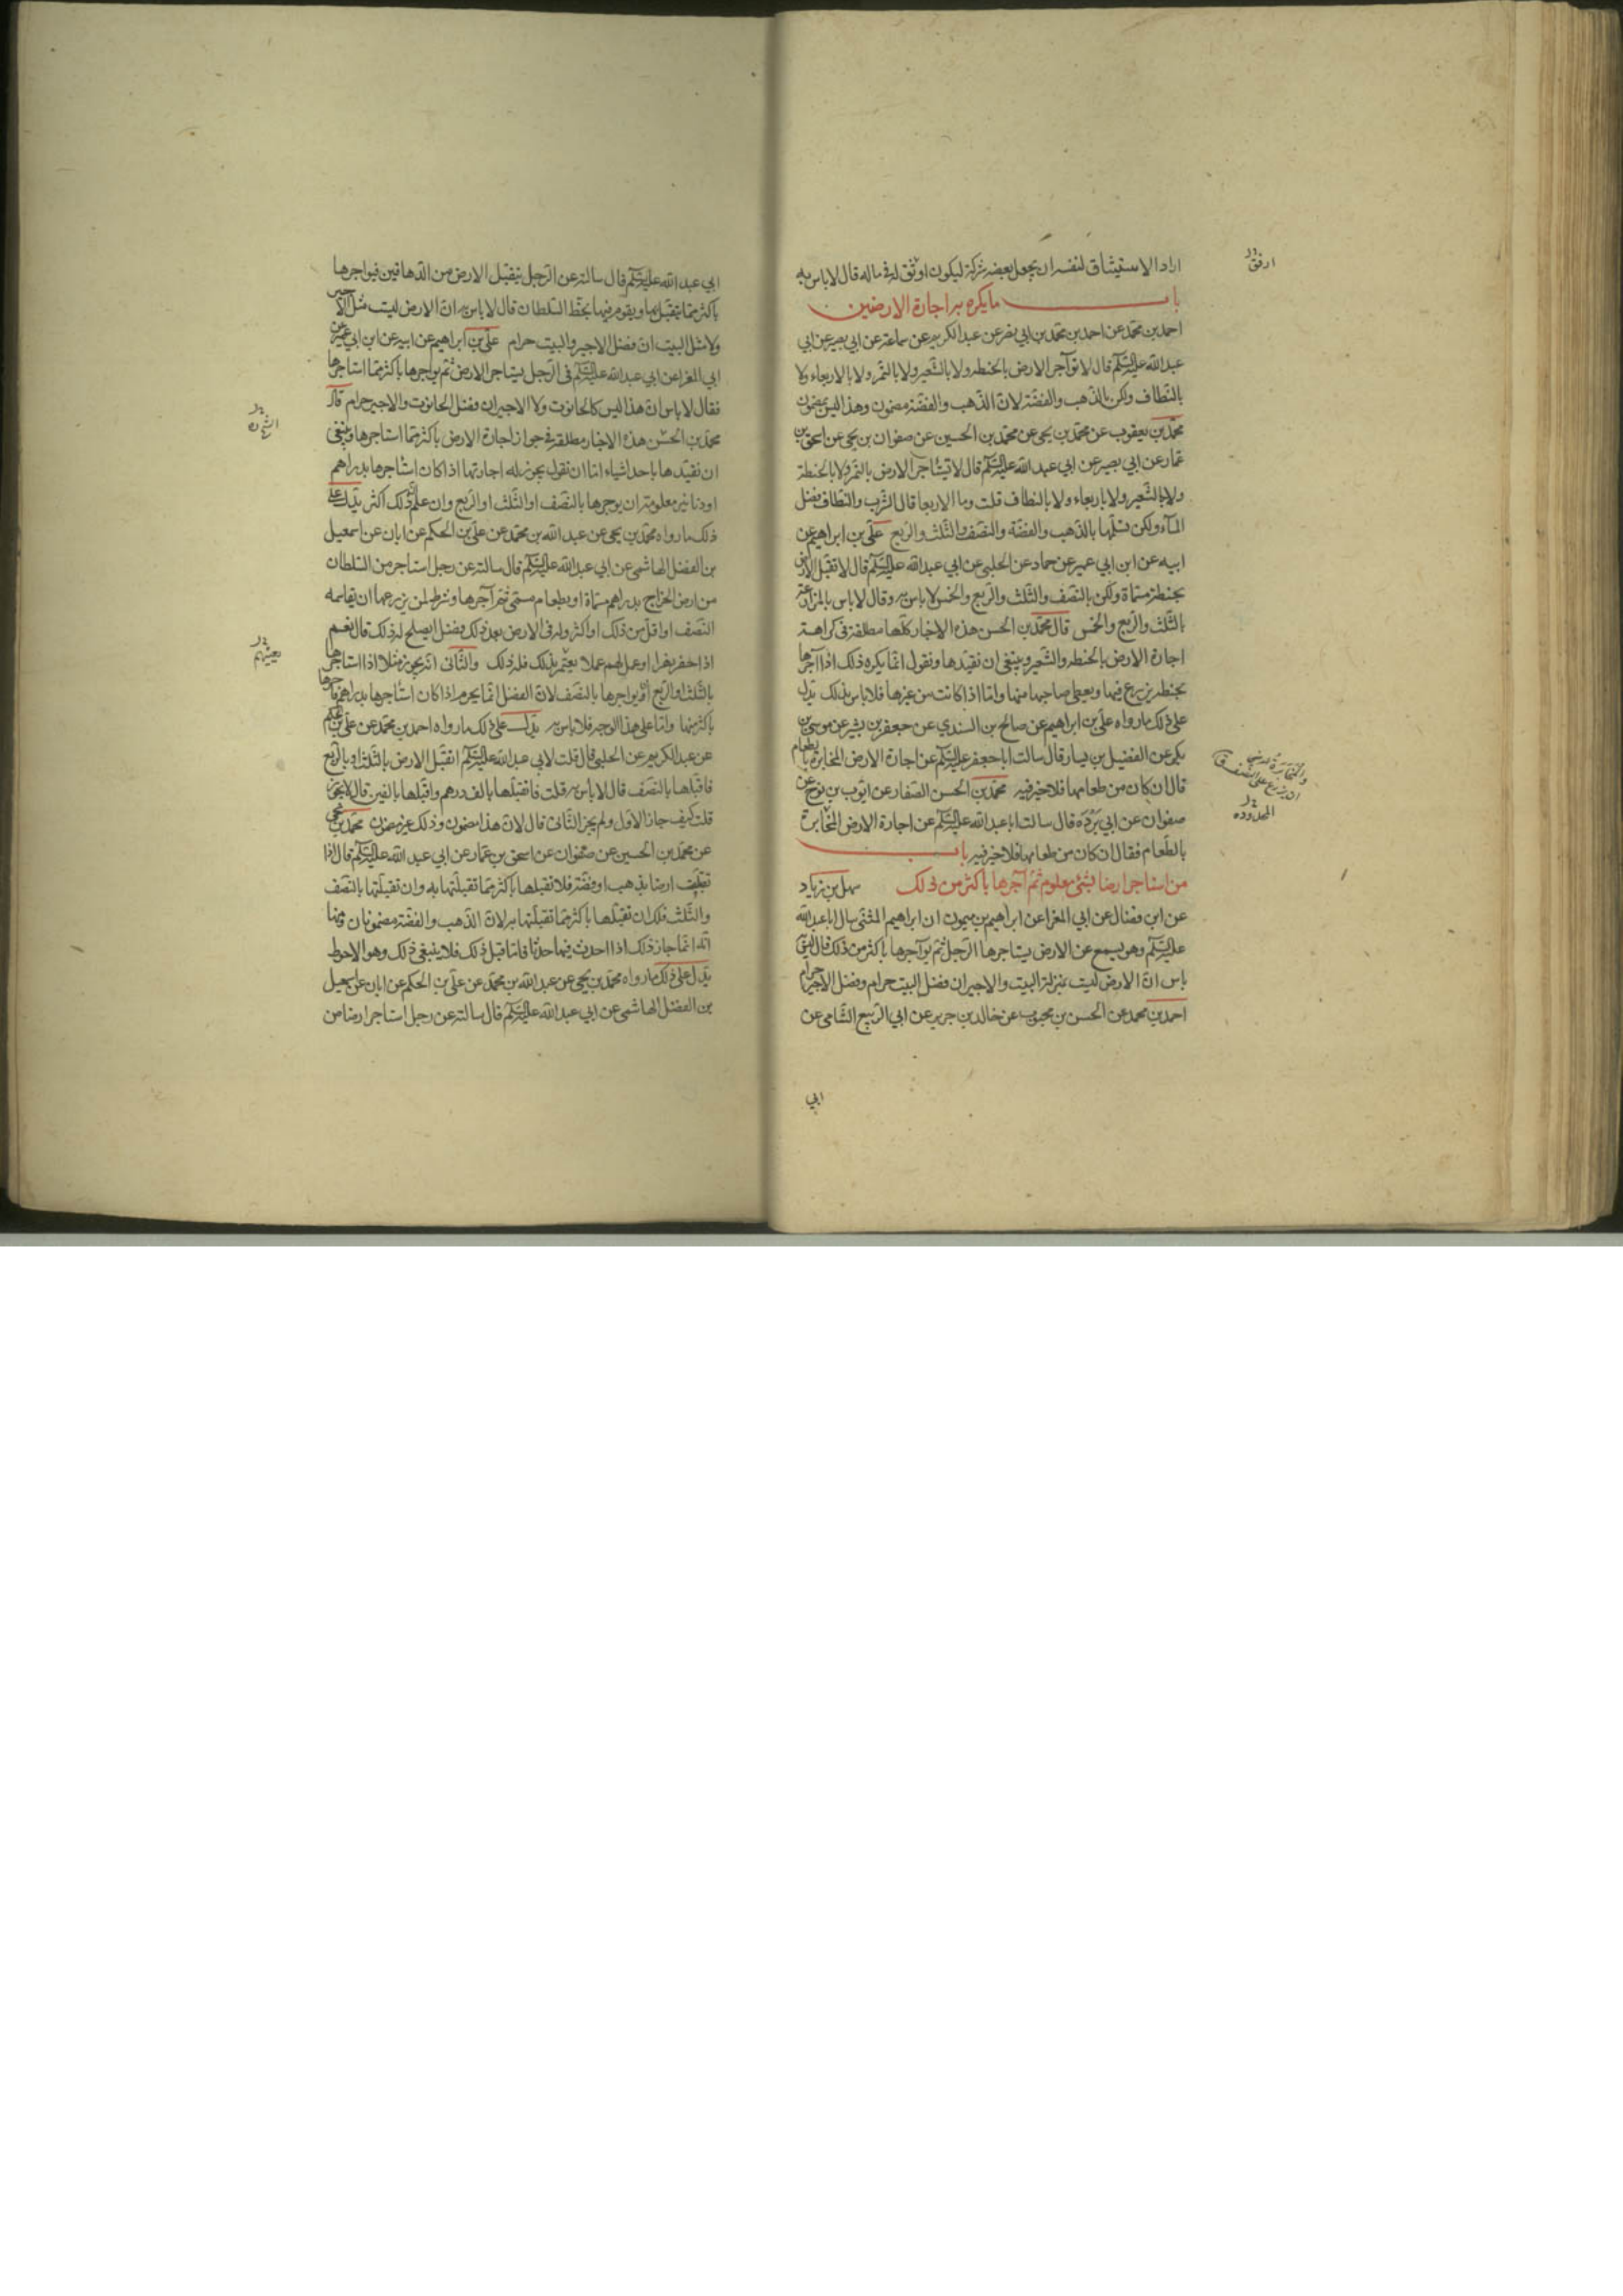 اراد الاستيثاق لنفسه ان يجعل بعضه شركة ليكون اوثق له في ماله قال لا باس به
باب ما يكره به اجارة الارضين
احمد بن محمد عن احمد بن محمد بن ابي نصر عن عبد الكريم عن سماعة عن ابي بصير عن ابي
عبد الله عليه السلام قال لا تؤاجر الارض بالحنطة ولا بالشعير ولا بالتمر ولا بالاربعاء ولا
بالنطاف ولكن بالذهب والفضة لان الذهب والفضة مضمون وهذا ليس بمضمون
محمد بن يعقوب عن محمد بن يحيى عن محمد بن الحسين عن صفوان بن يحيى عن اسحق بن
عمار عن ابي بصير عن ابي عبد الله عليه السلام قال لا تستاجر الارض بالتمر ولا بالحنطة
ولا بالشعير ولا باربعاء ولا بالنطاف قلت وما الاربعا قال الشرب والنطاف فضل
المآء ولكن تسلمها بالذهب والفضة والنصف والثلث والربع علي بن ابراهيم عن
ابيه عن ابن ابي عمير عن حماد عن الحلبي عن ابي عبد الله عليه السلام قال لا تقبل الارض
بحنطة مسماة ولكن بالنصف والثلث والربع والخمس لا باس به وقال لا باس بالمزارعة
بالثلث والربع والخمس قال محمد بن الحسن هذه الاخبار كلها مطلقة في كراهة
اجارة الارض بالحنطة والشعير وينبغي ان نقيدها ونقول انما يكره ذلك اذا آجرها
بحنطة يزرع فيها ويعطي صاحبها منها واما اذا كانت من غيرها فلا باس بذلك يدل
على ذلك ما رواه علي بن ابراهيم عن صالح بن السندي عن جعفر بن بشير عن موسى بن
بكر عن الفضيل بن يسار قال سالت ابا جعفر عليه السلام عن اجارة الارض المخابرة بالطعام
قال ان كان من طعامها فلا خير فيه محمد بن الحسن الصفار عن ايوب بن نوح عن
صفوان عن ابي بردة قال سالت ابا عبد الله عليه السلام عن اجارة الارض المخابرة
بالطعام فقال ان كان من طعامها فلا خير فيه باب
من استاجر ارضا بشئ معلوم ثم آجرها باكثر من ذلك سهل بن زياد
عن ابن فضال عن ابي المغرا عن ابراهيم بن ميمون ان ابراهيم المثنى سال ابا عبد الله
عليه السلام وهو يسمع عن الارض يستاجرها الرجل ثم يوآجرها باكثر من ذلك قال ليس
باس ان الارض ليست بمنزلة البيت والاجير ان فضل البيت حرام وفضل الاجير حرام
احمد بن محمد عن الحسن بن محبوب عن خالد بن جرير عن ابي الربيع الشامي عن
ابي
ارفق
ان يزرع على النصف
المحدودة
ابي عبد الله عليه السلام قال سالته عن الرجل يتقبل الارض من الدهاقين فيواجرها
باكثر مما يتقبل بها ويقوم فيها بحظ السلطان قال لا باس به ان الارض ليست مثل الاجير
ولا مثل البيت ان فضل الاجير والبيت حرام علي بن ابراهيم عن ابيه عن ابن ابي عمير عن
ابي المغرا عن ابي عبد الله عليه السلام في الرجل يستاجر الارض ثم يواجرها باكثر مما استاجرها
فقال لا باس ان هذا ليس كالحانوت ولا الاجير ان فضل الحانوت والاجير حرام قال
محمد بن الحسن هذه الاخبار مطلقة في جواز اجارة الارض باكثر مما استاجرها وينبغي
ان نقيدها باحد اشياء اما ان نقول يجوز له اجارتها اذا كان استاجرها بدراهم
او دنانير معلومة ان يوجرها بالنصف او الثلث او الربع وان علم ان ذلك اكثر يدل على
ذلك ما رواه محمد بن يحيى عن عبد الله بن محمد عن علي بن الحكم عن ابان عن اسمعيل
بن الفضل الهاشمي عن ابي عبد الله عليه السلام قال سالته عن رجل استاجر من السلطان
من ارض الخراج بدراهم مسماة او بطعام مسمى ثم آجرها وشرط لمن يزرعها ان يقاسمه
النصف او اقل من ذلك او اكثر وله في الارض بعد ذلك فضل ايصلح له ذلك قال نعم
اذا حفر نهرا او عمل لهم عملا يعينهم بذلك فله ذلك والثاني انه يجوز مثلا اذا استاجرها
بالثلث او الربع ان يواجرها بالنصف لان الفضل انما يحرم اذا كان استاجرها بدراهم فآجرها
باكثر منها واما على هذا الوجه فلا باس به يدل على ذلك ما رواه احمد بن محمد عن علي بن الحكم
عن عبد الكريم عن الحلبي قال قلت لابي عبد الله عليه السلام اتقبل الارض بالثلث او بالربع
فاقبلها بالنصف قال لا باس به قلت فاتقبلها بالف درهم واقبلها بالفين قال لا يجوز
قلت كيف جاز الاول ولم يجز الثاني قال لان هذا مضمون وذلك غير مضمون محمد بن يحيى
عن محمد بن الحسين عن صفوان عن اسحق بن عمار عن ابي عبد الله عليه السلام قال اذا
تقبلت ارضا بذهب او فضة فلا تقبلها باكثر مما تقبلتها به وان تقبلتها بالنصف
والثلث فلك ان تقبلها باكثر مما تقبلتها به لان الذهب والفضة مضمونان ومنها
انه انما جاز ذلك اذا احدث فيها حدثا فاما قبل ذلك فلا ينبغي ذلك وهو الاحوط
يدل على ذلك ما رواه محمد بن يحيى عن عبد الله بن محمد عن علي بن الحكم عن ابان عن اسمعيل
بن الفضل الهاشمي عن ابي عبد الله عليه السلام قال سالته عن رجل استاجر ارضا من
يعينهم